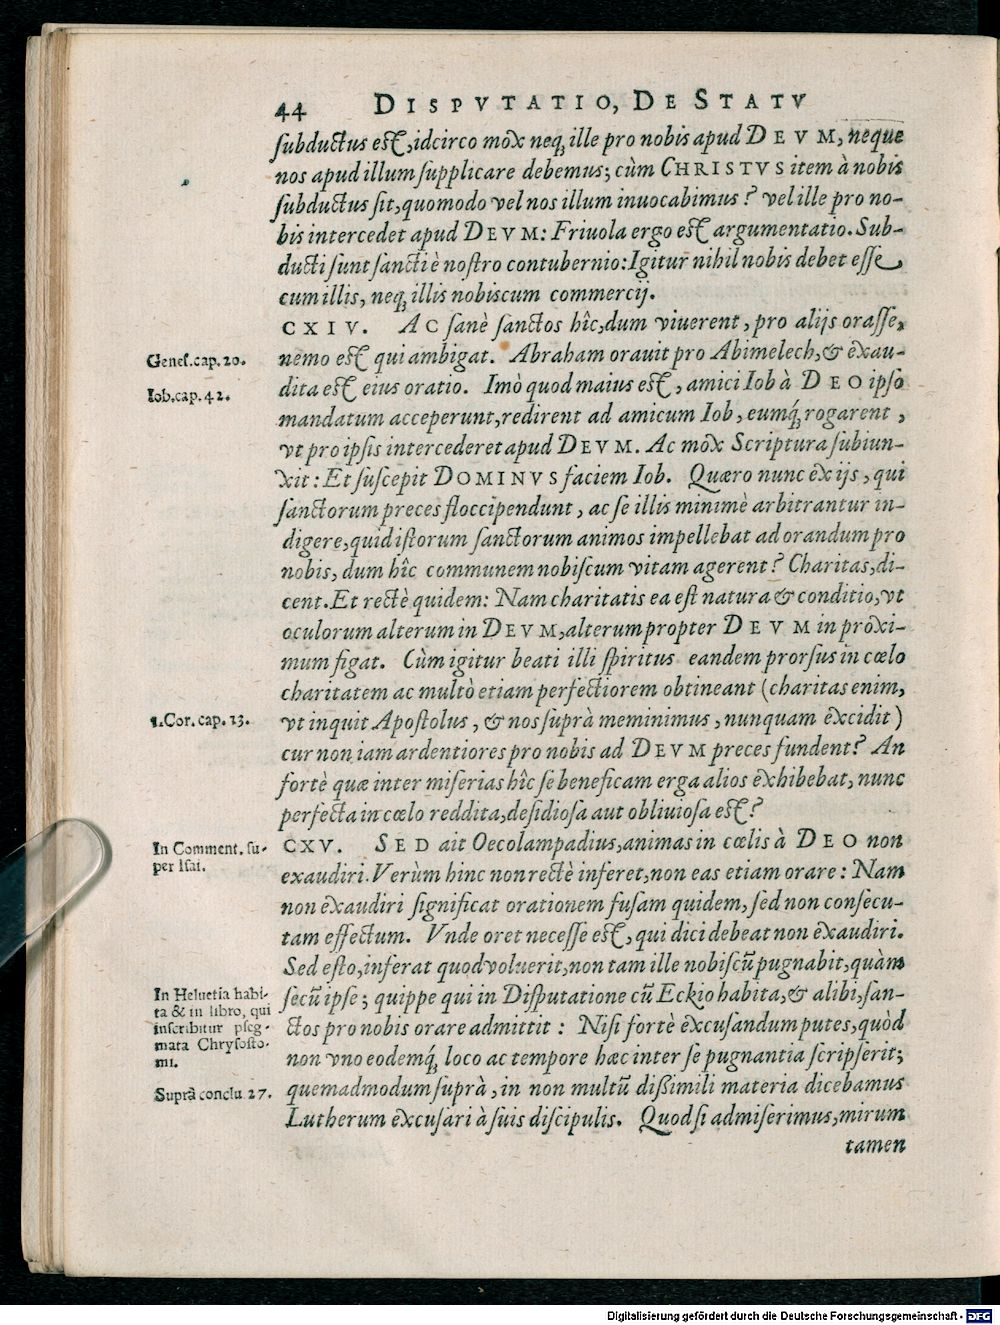 44 DISPVTATIO, DE STATV
subductus est, idcirco mox neq; ille pro nobis apud DEVM, neque
nos apud illum supplicare debemus; cùm CHRISTVS item à nobis
subductus sit, quomodo vel nos illum inuocabimus? vel ille pro no-
bis intercedet apud DEVM: Friuola ergo est argumentatio. Sub-
ducti sunt sancti è nostro contubernio: Igitur nihil nobis debet esse
cum illis, neq; illis nobiscum commercij.
CXIV. AC sanè sanctos hîc, dum viuerent, pro alijs orasse,
Genes. cap. 20.
nemo est qui ambigat. Abraham orauit pro Abimelech, & exau-
Iob. cap. 42.
dita est eius oratio. Imò quod maius est, amici Iob à DEO ipso
mandatum acceperunt, redirent ad amicum Iob, eumq́; rogarent,
vt pro ipsis intercederet apud DEVM. Ac mox Scriptura subiun-
xit: Et suscepit DOMINVS faciem Iob. Quæro nunc ex ijs, qui
sanctorum preces floccipendunt, ac se illis minimè arbitrantur in-
digere, quid istorum sanctorum animos impellebat ad orandum pro
nobis, dum hîc communem nobiscum vitam agerent? Charitas, di-
cent. Et rectè quidem: Nam charitatis ea est natura & conditio, vt
oculorum alterum in DEVM, alterum propter DEVM in proxi-
mum figat. Cùm igitur beati illi spiritus eandem prorsus in cœlo
charitatem ac multò etiam perfectiorem obtineant (charitas enim,
1. Cor. cap. 13.
vt inquit Apostolus, & nos suprà meminimus, nunquam excidit)
cur non iam ardentiores pro nobis ad DEVM preces fundent? An
fortè quæ inter miserias hîc se beneficam erga alios exhibebat, nunc
perfecta in cœlo reddita, desidiosa aut obliuiosa est?
In Comment. su-
per Isai.
CXV. SED ait Oecolampadius, animas in cœlis à DEO non
exaudiri. Verùm hinc non rectè inferet, non eas etiam orare: Nam
non exaudiri significat orationem fusam quidem, sed non consecu-
tam effectum. Vnde oret necesse est, qui dici debeat non exaudiri.
Sed esto, inferat quod voluerit, non tam ille nobiscũ pugnabit, quàm
In Heluetia habi-
ta & in libro, qui
inscribitur pseg-
mata Chrysosto-
mi.
secũ ipse; quippe qui in Disputatione cũ Eckio habita, & alibi, san-
ctos pro nobis orare admittit: Nisi fortè excusandum putes, quòd
non vno eodemq́; loco ac tempore hæc inter se pugnantia scripserit;
Suprà conclu. 27.
quemadmodum suprà, in non multũ dißimili materia dicebamus
Lutherum excusari à suis discipulis. Quod si admiserimus, mirum
tamen
Digitalisierung gefördert durch die Deutsche Forschungsgemeinschaft - DFG